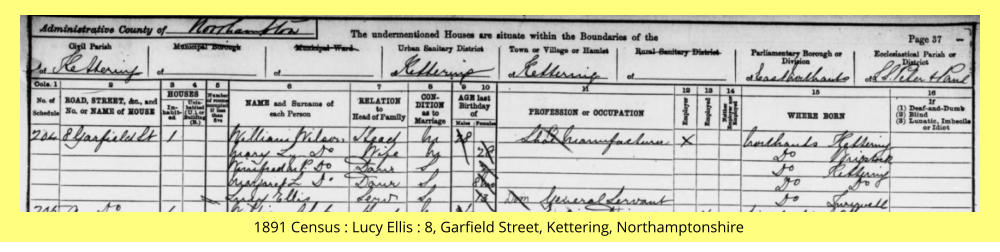 Administrative County of Northampton
The undermentioned Houses are situate within the Boundaries of the
Page 37
Civil Parish Municipal Borough Municipal Ward Urban Sanitary District Town or Village or Hamlet Rural Sanitary District Parliamentary Borough or Division Ecclesiastical Parish or District
of Kettering of of Kettering of Kettering of of East Northants of St Peter & Paul
Cols. 1 2 3 4 5 6 7 8 9 10 11 12 13 14 15 16
No. of Schedule ROAD, STREET, &c., and No. or NAME of HOUSE HOUSES Inhabited Uninhabited (U.), or Building (B.) Number of rooms occupied if less than five NAME and Surname of each Person RELATION to Head of Family CONDITION as to Marriage AGE last Birthday of Males Females PROFESSION or OCCUPATION Employer Employed Neither WHERE BORN If (1) Deaf-and-Dumb (2) Blind (3) Lunatic, Imbecile or Idiot
8 Garfield St 1 William Head M 28 Manufacturer X Northants Kettering
Mary L. Do Wife M 28 Do
Winifred Do Daur S Do Kettering
Margaret L. Do Daur S Do Do
Lucy Ellis Serv S Dom General Servant Do
1891 Census : Lucy Ellis : 8, Garfield Street, Kettering, Northamptonshire